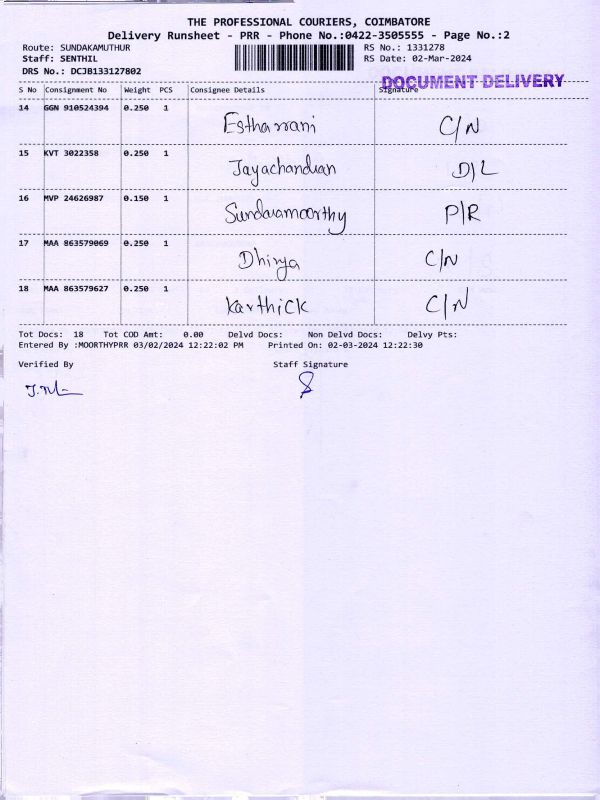 THE PROFESSIONAL COURIERS, COIMBATORE
Delivery Runsheet - PRR - Phone No.:0422-3505555 - Page No.:2
Route: SUNDAKAMUTHUR RS No.: 1331278
Staff: SENTHIL RS Date: 02-Mar-2024
DRS No.: DCJB133127802
DOCUMENT DELIVERY
S No Consignment No Weight PCS Consignee Details Signature
14 GGN 910524394 0.250 1 Estharrani C/N
15 KVT 3022358 0.250 1 Jayachandran D/L
16 MVP 24626987 0.150 1 Sundaramoorthy P/R
17 MAA 863579069 0.250 1 Dhivya C/N
18 MAA 863579627 0.250 1 Karthick C/N
Tot Docs: 18 Tot COD Amt: 0.00 Delvd Docs: Non Delvd Docs: Delvy Pts:
Entered By :MOORTHYPRR 03/02/2024 12:22:02 PM Printed On: 02-03-2024 12:22:30
Verified By Staff Signature